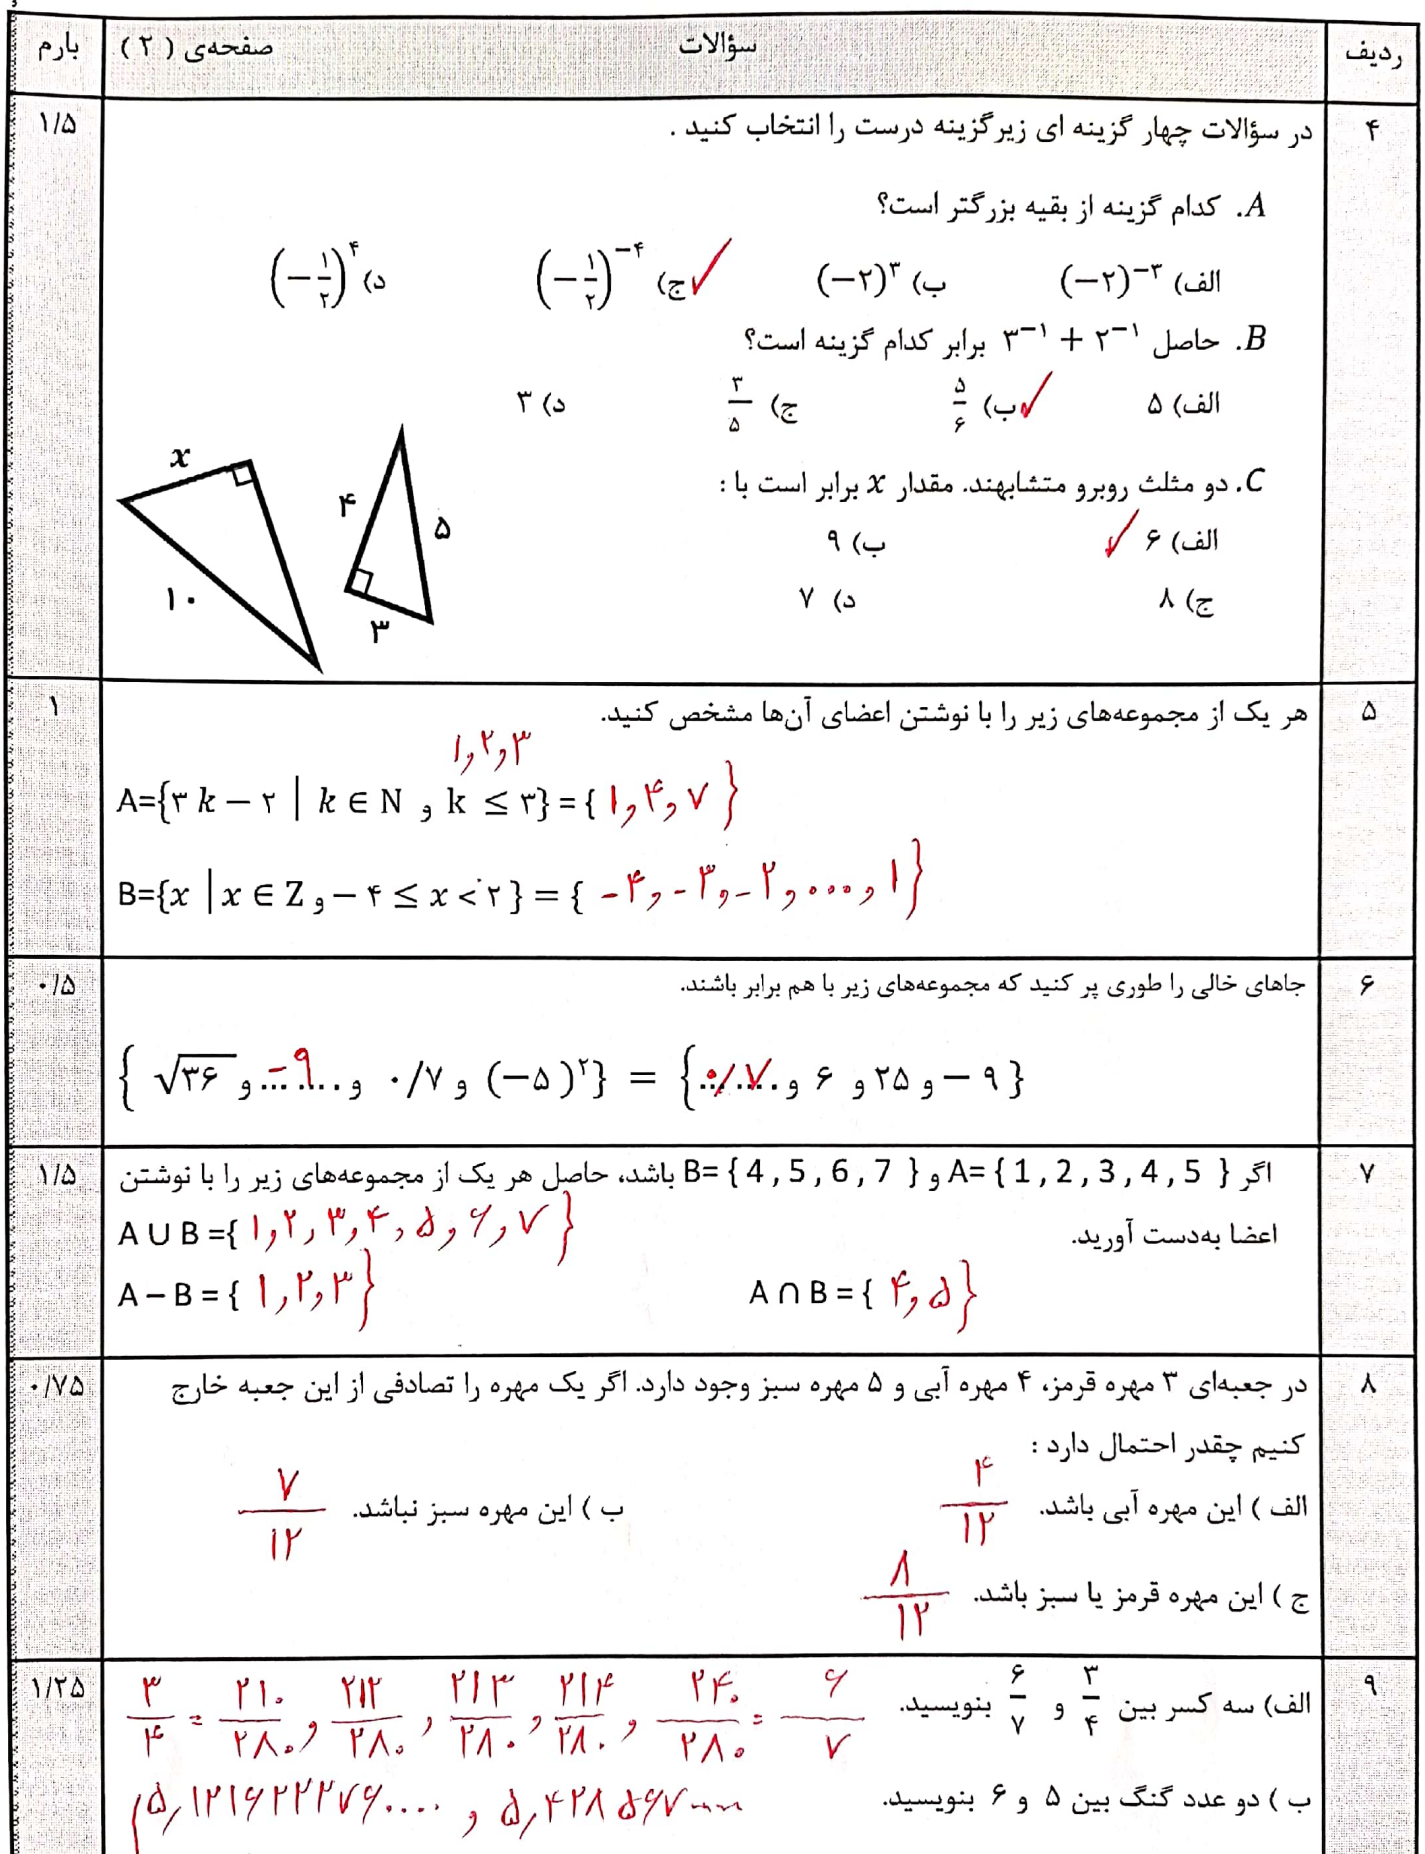 ردیف سؤالات صفحه‌ی ( ۲ ) بارم
۴ در سؤالات چهار گزینه ای زیرگزینه درست را انتخاب کنید . ۱/۵
A. کدام گزینه از بقیه بزرگتر است؟
الف) (−۲)^−۳ ب) (−۲)^۳ ج) (−۱/۲)^−۴ ✓ د) (−۱/۲)^۴
B. حاصل ۳^−۱ + ۲^−۱ برابر کدام گزینه است؟
الف) ۵ ب) ۵/۶ ✓ ج) ۳/۵ د) ۳
C. دو مثلث روبرو متشابهند. مقدار x برابر است با :
الف) ۶ ✓ ب) ۹
ج) ۸ د) ۷
x ۱۰ ۴ ۵ ۳
۵ هر یک از مجموعه‌های زیر را با نوشتن اعضای آن‌ها مشخص کنید. ۱
۱,۲,۳
A={۳ k − ۲ | k ∈ N و k ≤ ۳} = { ۱,۴,۷ }
B={x | x ∈ Z و − ۴ ≤ x < ۲ } = { -۴,-۳,-۲,....,۱ }
۶ جاهای خالی را طوری پر کنید که مجموعه‌های زیر با هم برابر باشند. ۰/۵
{ √۳۶ و -۹ و ۰/۷ و (−۵)^۲ } = { ۰/۷ و ۶ و ۲۵ و − ۹ }
۷ اگر A= { 1 , 2 , 3 , 4 , 5 } و B= { 4 , 5 , 6 , 7 } باشد، حاصل هر یک از مجموعه‌های زیر را با نوشتن ۱/۵
اعضا به‌دست آورید. A ∪ B ={ ۱,۲,۳,۴,۵,۶,۷ }
A − B = { ۱,۲,۳ } A ∩ B = { ۴,۵ }
۸ در جعبه‌ای ۳ مهره قرمز، ۴ مهره آبی و ۵ مهره سبز وجود دارد. اگر یک مهره را تصادفی از این جعبه خارج ۰/۷۵
کنیم چقدر احتمال دارد :
الف ) این مهره آبی باشد. ۴/۱۲ ب ) این مهره سبز نباشد. ۷/۱۲
ج ) این مهره قرمز یا سبز باشد. ۸/۱۲
۹ الف) سه کسر بین ۳/۴ و ۶/۷ بنویسید. ۳/۴ = ۲۱۰/۲۸۰ , ۲۱۲/۲۸۰ , ۲۱۳/۲۸۰ , ۲۱۴/۲۸۰ , ۲۴۰/۲۸۰ = ۶/۷ ۱/۲۵
ب ) دو عدد گنگ بین ۵ و ۶ بنویسید. ۵,۱۲۱۶۲۲۲۷۶.... , ۵,۴۲۸۵۶۷...